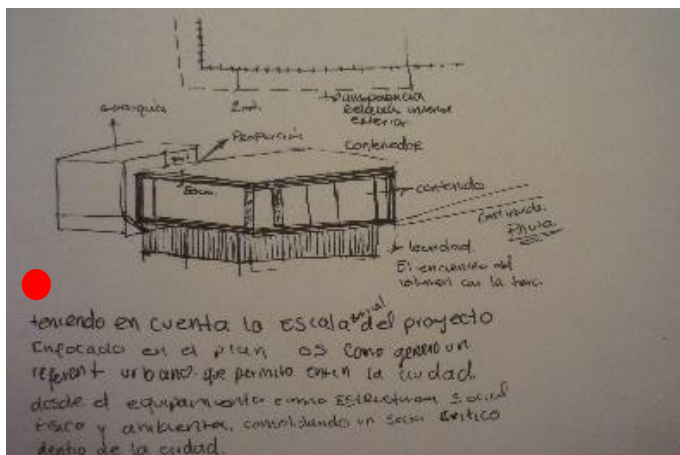 2 mt.
transparencia
Relacion interior
exterior
Jerarquia
Proporción
Contenedor
contenido
levedad.
El encuentro del
volumen con la
teniendo en cuenta la Escala social del proyecto
Enfocado en el plan como genero un
referent urbano que permito en la ciudad
desde el equipamiento como Estructura social
fisico y ambiental, consolidando un
dentro de la ciudad.